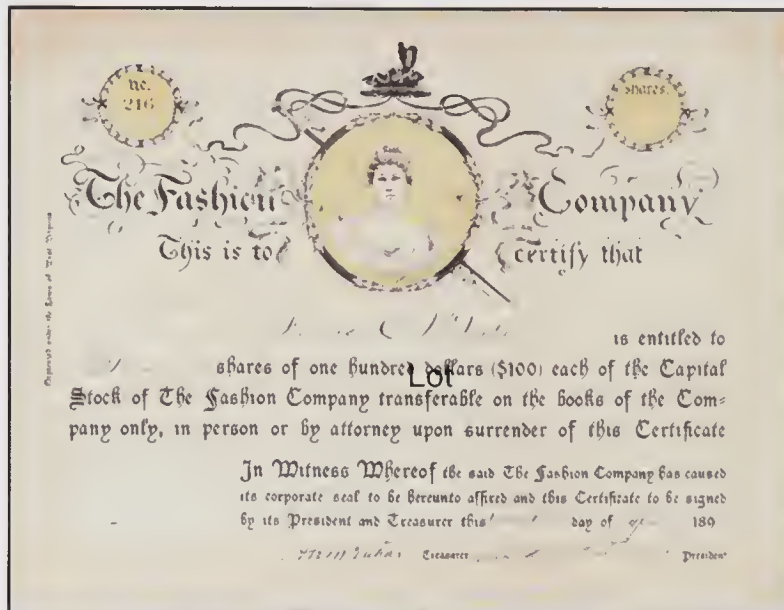 no.
216
shares.
The Fashion Company
This is to certify that
is entitled to
shares of one hundred dollars ($100) each of the Capital
Lot
Stock of The Fashion Company transferable on the books of the Com=
pany only, in person or by attorney upon surrender of this Certificate
In Witness Whereof the said The Fashion Company has caused
its corporate seal to be hereunto affixed and this Certificate to be signed
by its President and Treasurer this day of 189
Treasurer President
Organized under the Laws of West Virginia